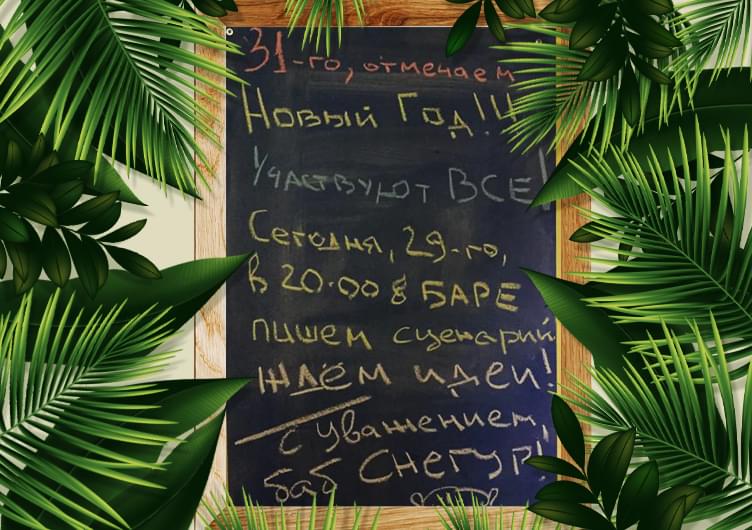 31-го, отмечаем
Новый Год!!!
Участвуют ВСЕ!
Сегодня, 29-го,
в 20.00 в БАРЕ
пишем сценарий
ждем идеи!
с уважением,
баб СНЕГУР!